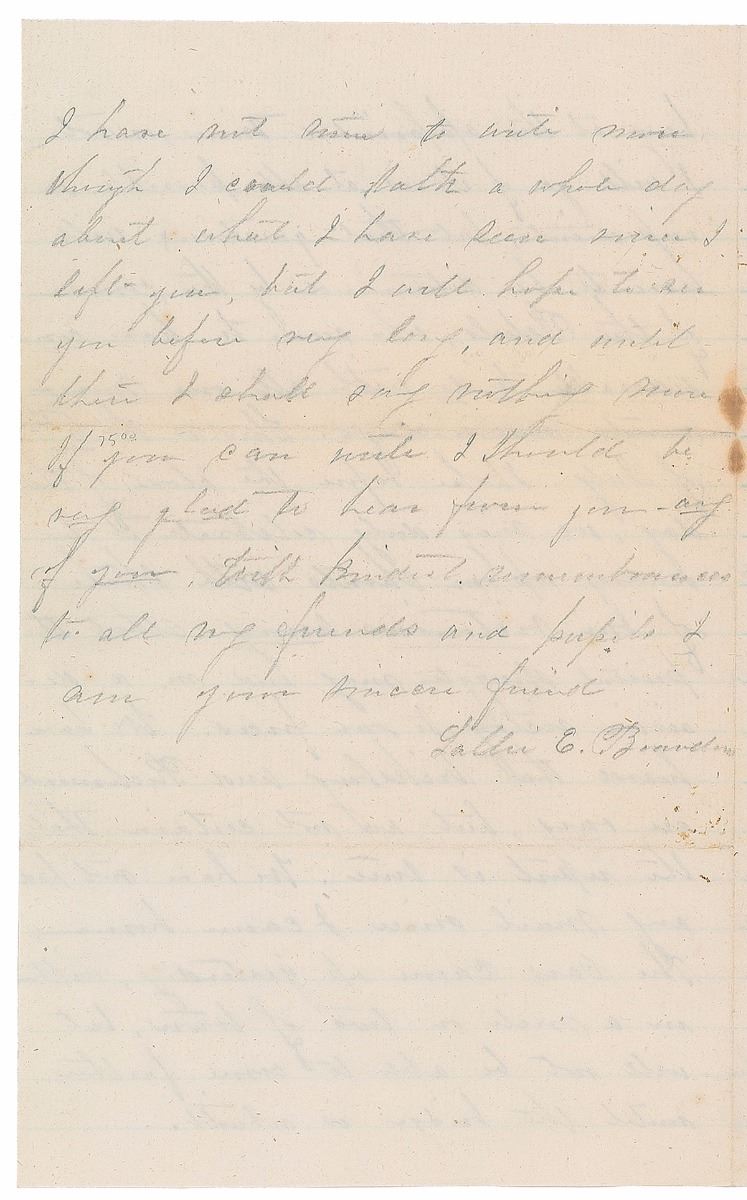 I have not time to write more
though I could talk a whole day
about what I have seen since I
left you, but I will hope to see
you before very long, and until
then I shall say nothing more
If you can write I Should be
very glad to hear from you - any
of you. With kindest remembrances
to all my friends and pupils I
am your sincere friend
Sallie E.